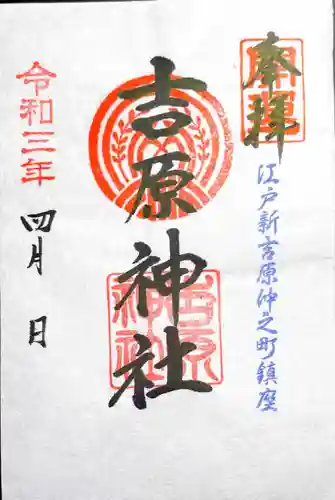 奉拝
江戸新吉原仲之町鎮座
吉原神社
令和三年
四月 日